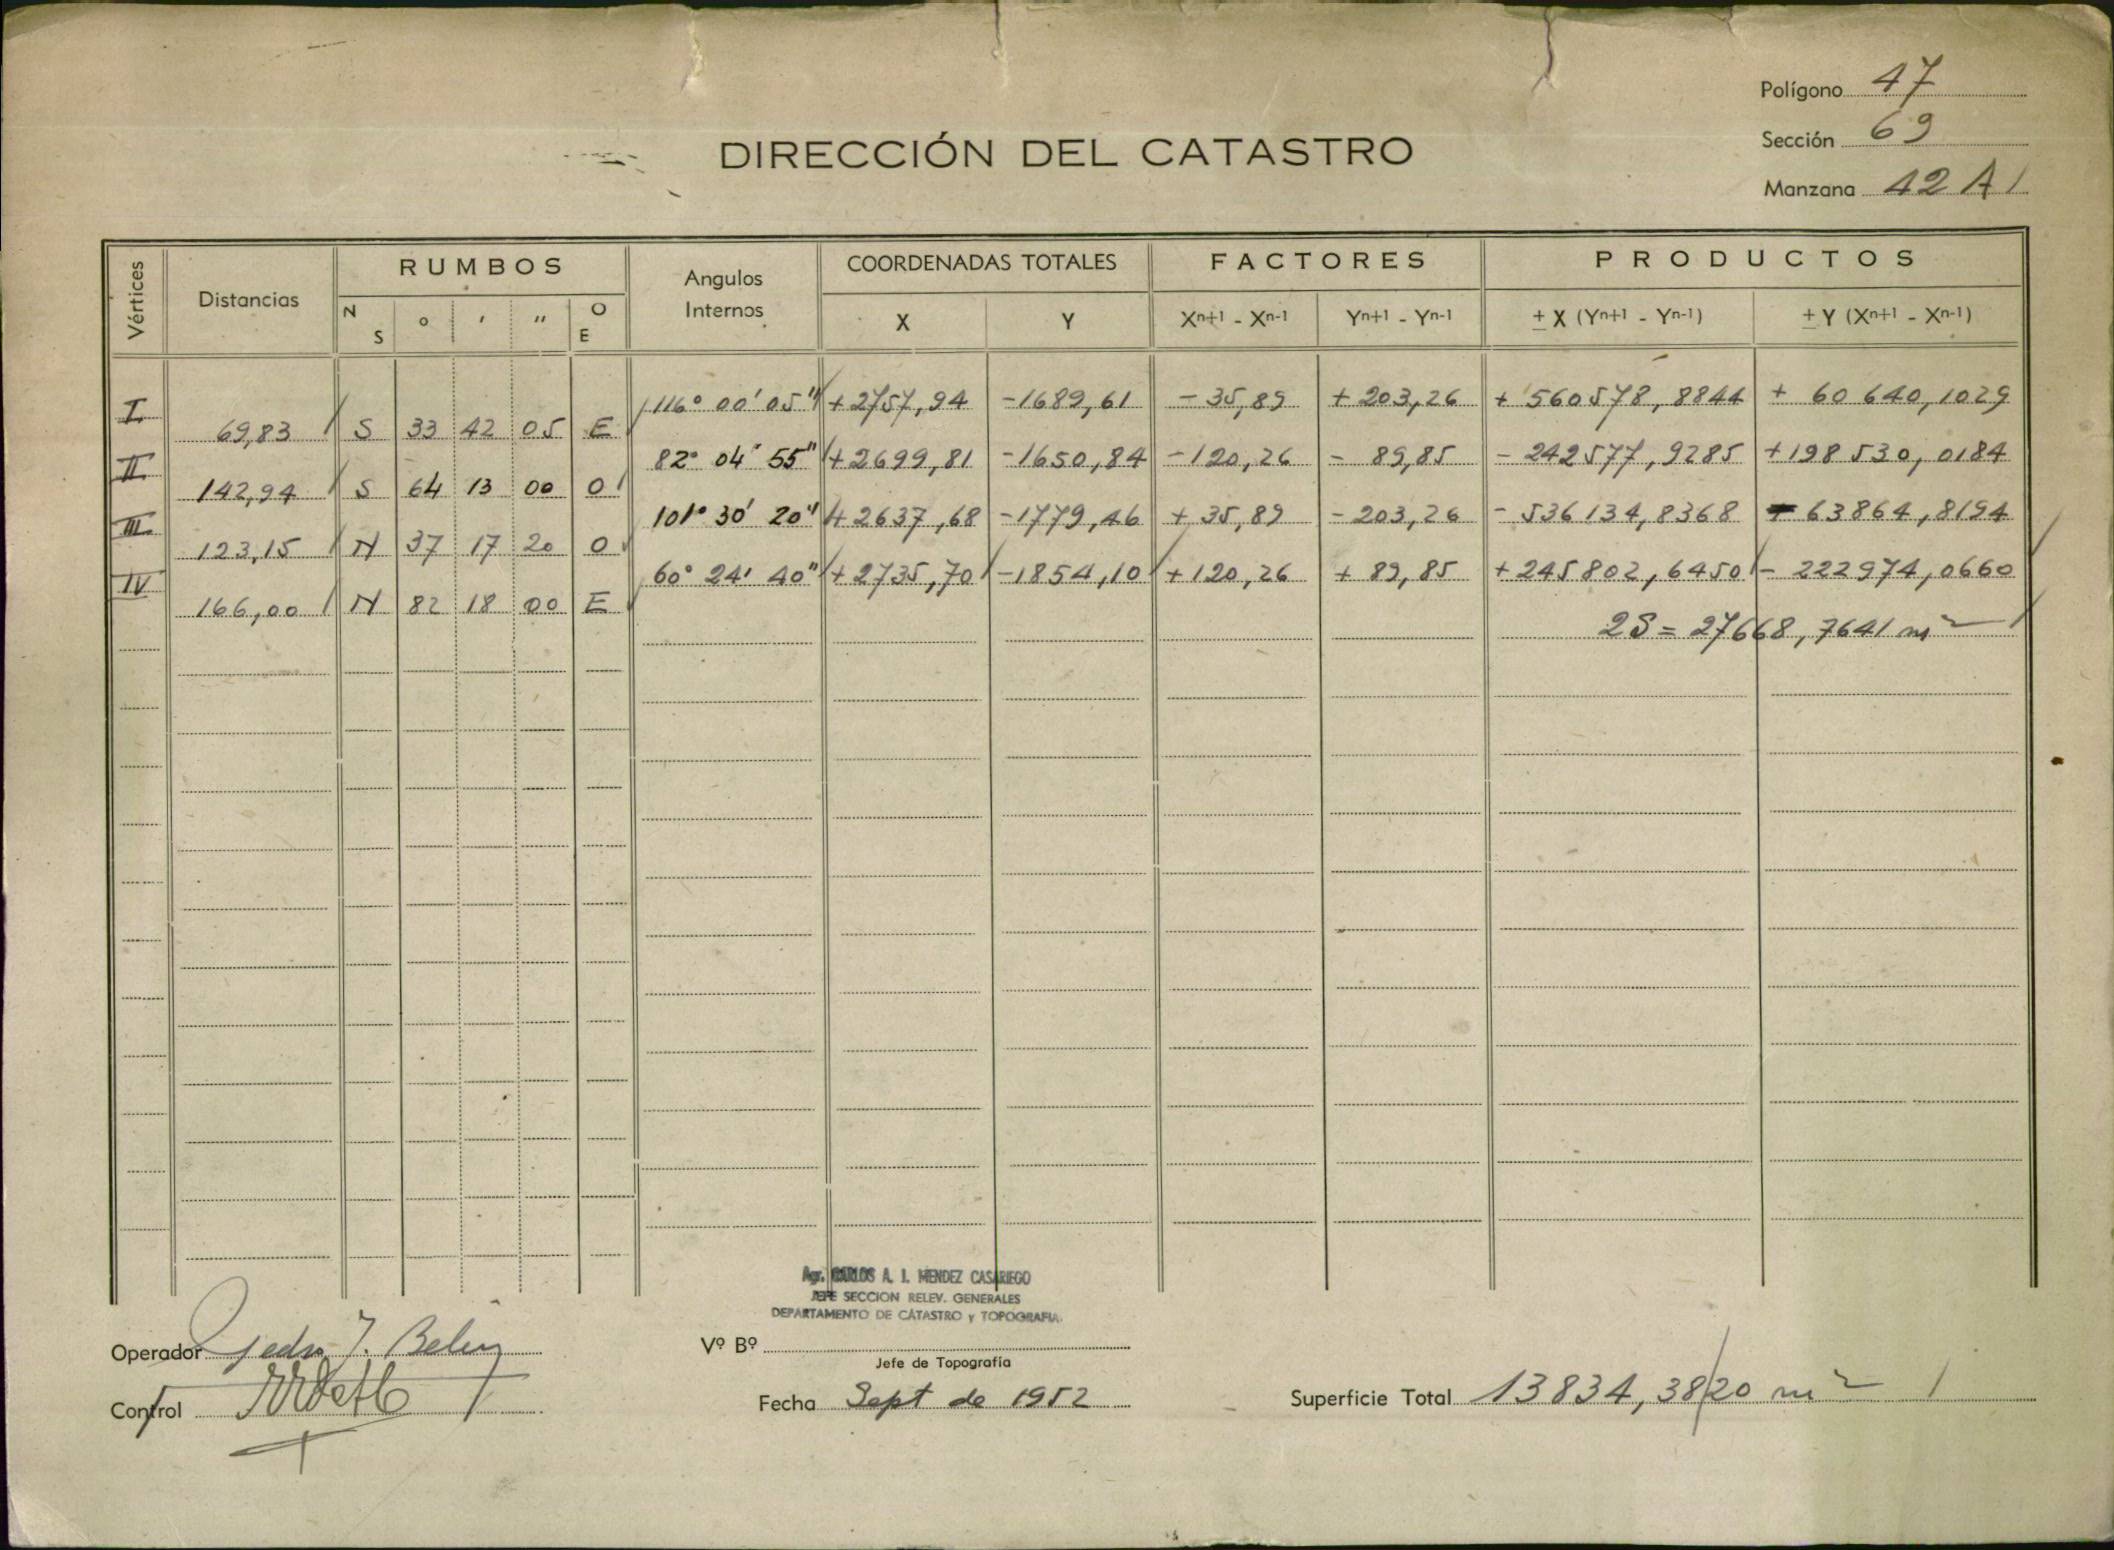 Polígono 47
Sección 69
DIRECCIÓN DEL CATASTRO
Manzana 42 A
Vértices Distancias RUMBOS Angulos Internos COORDENADAS TOTALES FACTORES PRODUCTOS
N S ° ' '' O E X Y Xn+1 - Xn-1 Yn+1 - Yn-1 ± X (Yn+1 - Yn-1) ± Y (Xn+1 - Xn-1)
I 116° 00' 05" +2757,94 -1689,61 -35,89 +203,26 + 560578,8844 + 60 640,1029
69,83 S 33 42 05 E
II 82° 04' 55" +2699,81 -1650,84 -120,26 - 89,85 - 242577,9285 +198 530,0184
142,94 S 64 13 00 O
III 101° 30' 20" +2637,68 -1779,46 + 35,89 -203,26 - 536134,8368 - 63864,8194
123,15 N 37 17 20 O
IV 60° 24' 40" +2735,70 -1854,10 +120,26 + 89,85 +245802,6450 - 222974,0660
166,00 N 82 18 00 E
2S = 27668,7641 m²
Agr. CARLOS A. I. MENDEZ CASARIEGO
JEFE SECCION RELEV. GENERALES
DEPARTAMENTO DE CATASTRO y TOPOGRAFIA
Operador Pedro J.
Vº Bº
Jefe de Topografía
Control
Fecha Sept de 1952
Superficie Total 13834,3820 m²